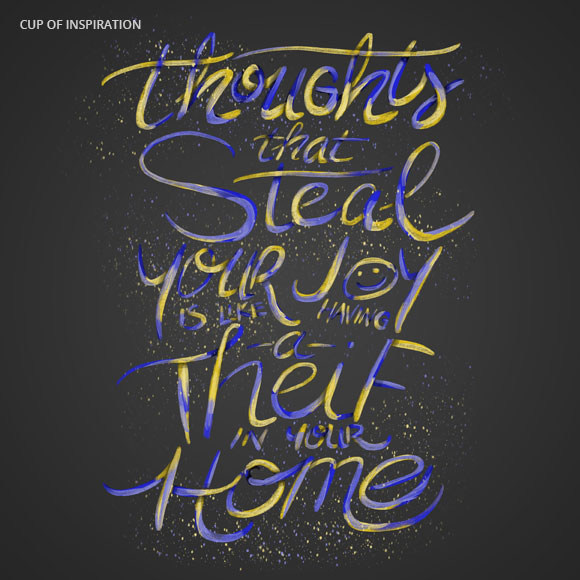 CUP OF INSPIRATION
Thoughts
that
Steal
YOUR JOY
IS LIKE HAVING
-a-
Theif
IN YOUR
Home